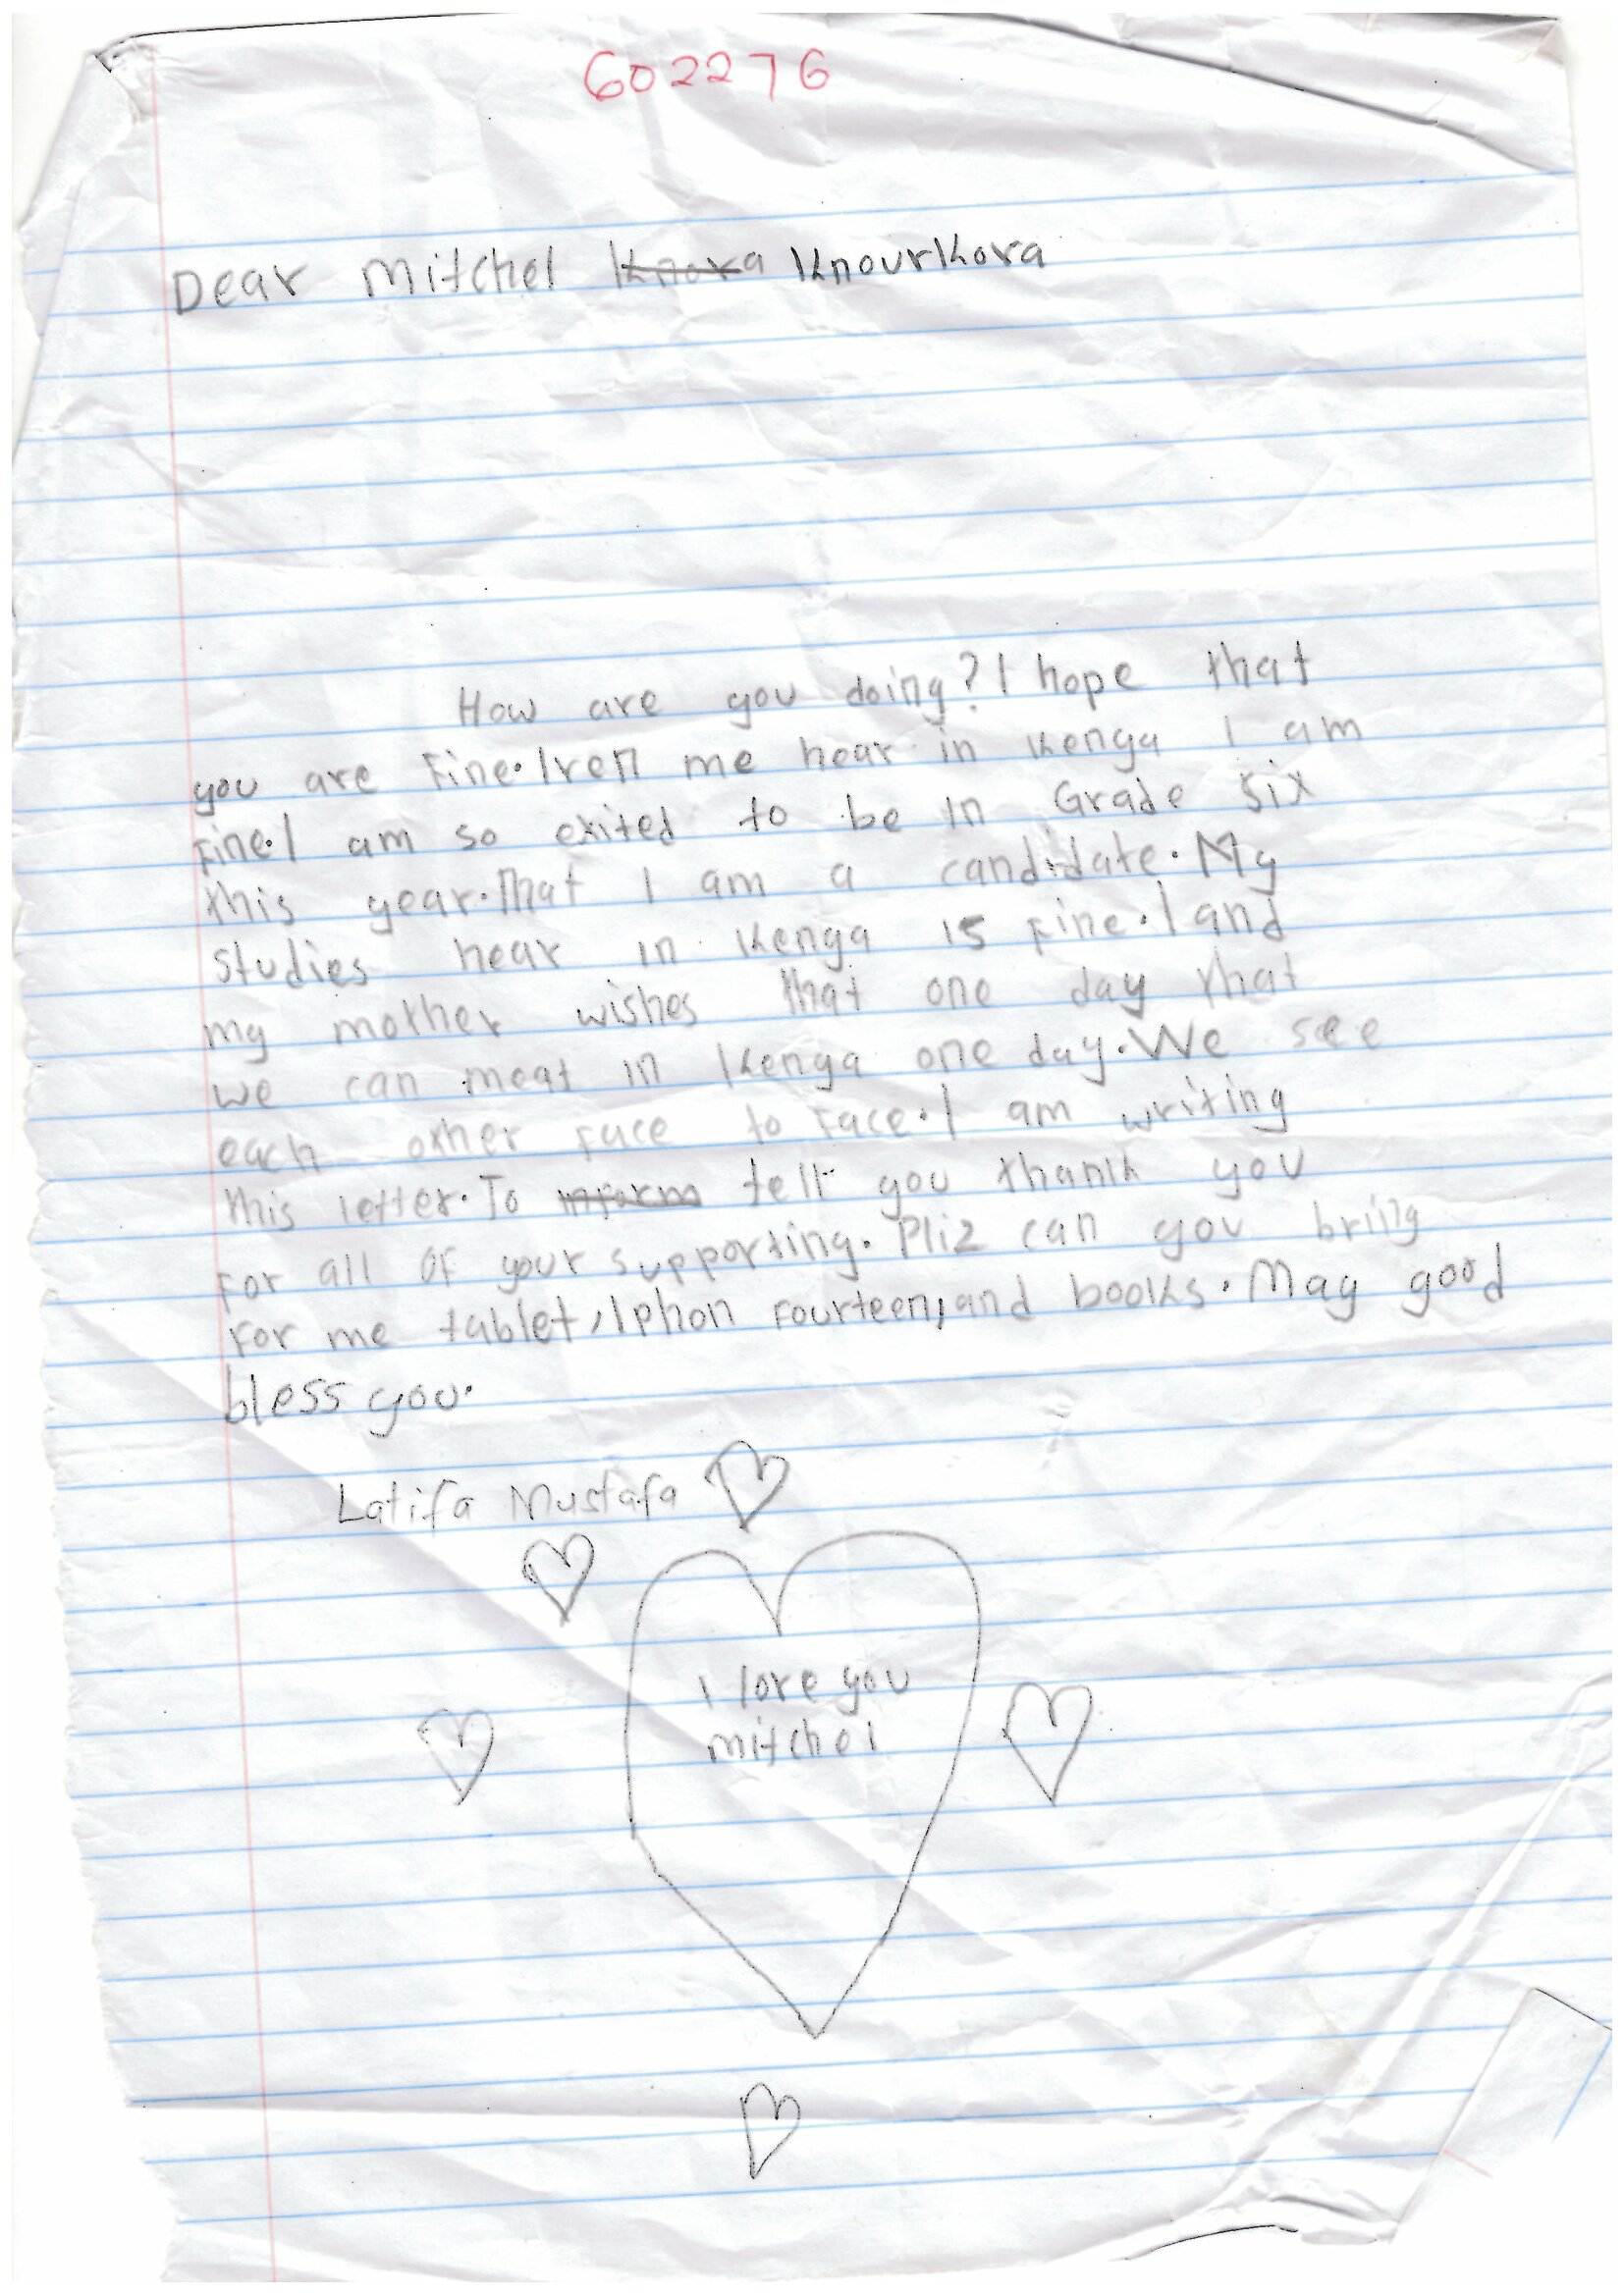 602276
Dear Mitchel Knora Knourkora
How are you doing? I hope that
you are Fine. Iven me hear in Kenya I am
Fine. I am so exited to be in Grade six
this year. That I am a candidate. My
studies hear in Kenya is Fine. I and
my mother wishes that one day that
we can meat in Kenya one day. We see
each other Face to Face. I am writing
this letter. To inform tell you thank you
For all OF your supporting. Pliz can you bring
For me tablet, Iphon Fourteen, and books. May good
bless you.
Latifa Mustafa
I love you
mitchel